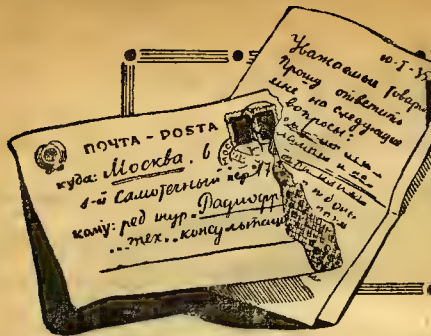 ПОЧТА - POSTA
куда: Москва, 6
1-й Самотечный пер. 17
кому: ред жур. Радиофр
тех. консультац
10-I-35
Уважаемые товар
Прошу ответить
мне на следующие
вопросы: